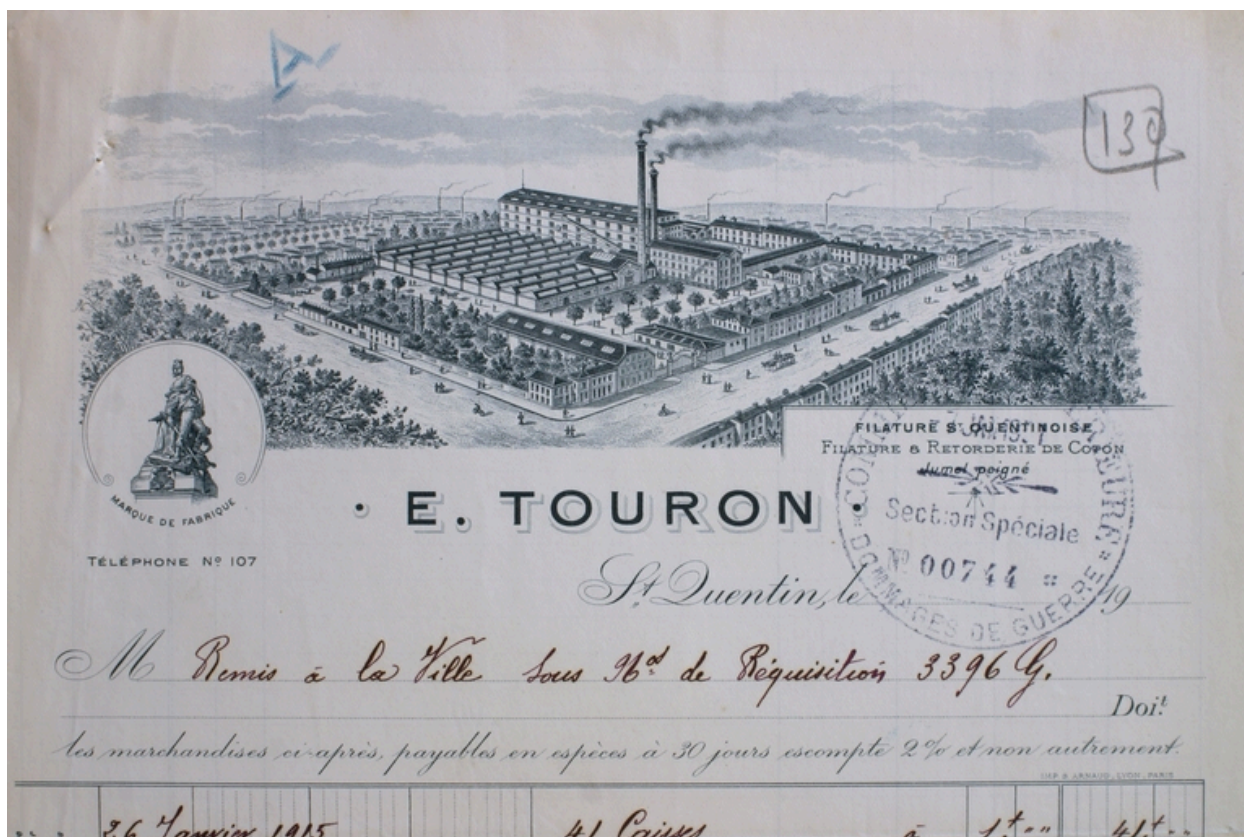 139
FILATURE St QUENTINOISE
FILATURE & RETORDERIE DE COTON
Jumel peigné
MARQUE DE FABRIQUE
• E. TOURON •
Section Spéciale
TÉLÉPHONE Nº 107
Nº 00744
DOMMAGES DE GUERRE
St Quentin, le 19
M Remis à la Ville sous Nos de Réquisition 3396 G.
Doit
les marchandises ci-après, payables en espèces à 30 jours escompte 2% et non autrement.
IMP. B. ARNAUD, LYON-PARIS
26 Janvier 1915 41 Caisses à 1